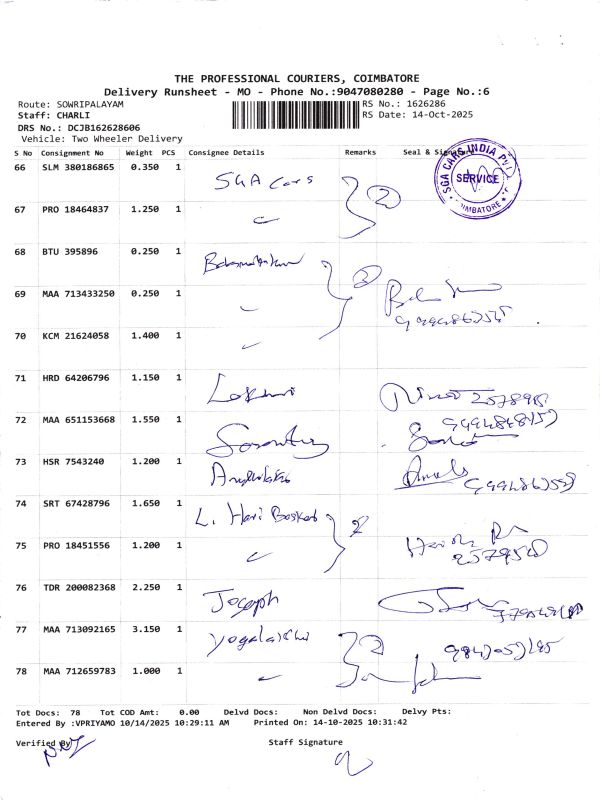 THE PROFESSIONAL COURIERS, COIMBATORE
Delivery Runsheet - MO - Phone No.:9047080280 - Page No.:6
Route: SOWRIPALAYAM RS No.: 1626286
Staff: CHARLI RS Date: 14-Oct-2025
DRS No.: DCJB162628606
Vehicle: Two Wheeler Delivery
S No Consignment No Weight PCS Consignee Details Remarks Seal &
SGA CARS INDIA PVT
SERVICE
COIMBATORE
66 SLM 380186865 0.350 1 SGA Cars 2
67 PRO 18464837 1.250 1
68 BTU 395896 0.250 1
69 MAA 713433250 0.250 1
70 KCM 21624058 1.400 1
71 HRD 64206796 1.150 1 Lakshmi
72 MAA 651153668 1.550 1
73 HSR 7543240 1.200 1
74 SRT 67428796 1.650 1 L. Hari Baskar 2
75 PRO 18451556 1.200 1
76 TDR 200082368 2.250 1 Joseph
77 MAA 713092165 3.150 1 Yogalakshmi 2
78 MAA 712659783 1.000 1
Tot Docs: 78 Tot COD Amt: 0.00 Delvd Docs: Non Delvd Docs: Delvy Pts:
Entered By :VPRIYAMO 10/14/2025 10:29:11 AM Printed On: 14-10-2025 10:31:42
Verified By Staff Signature